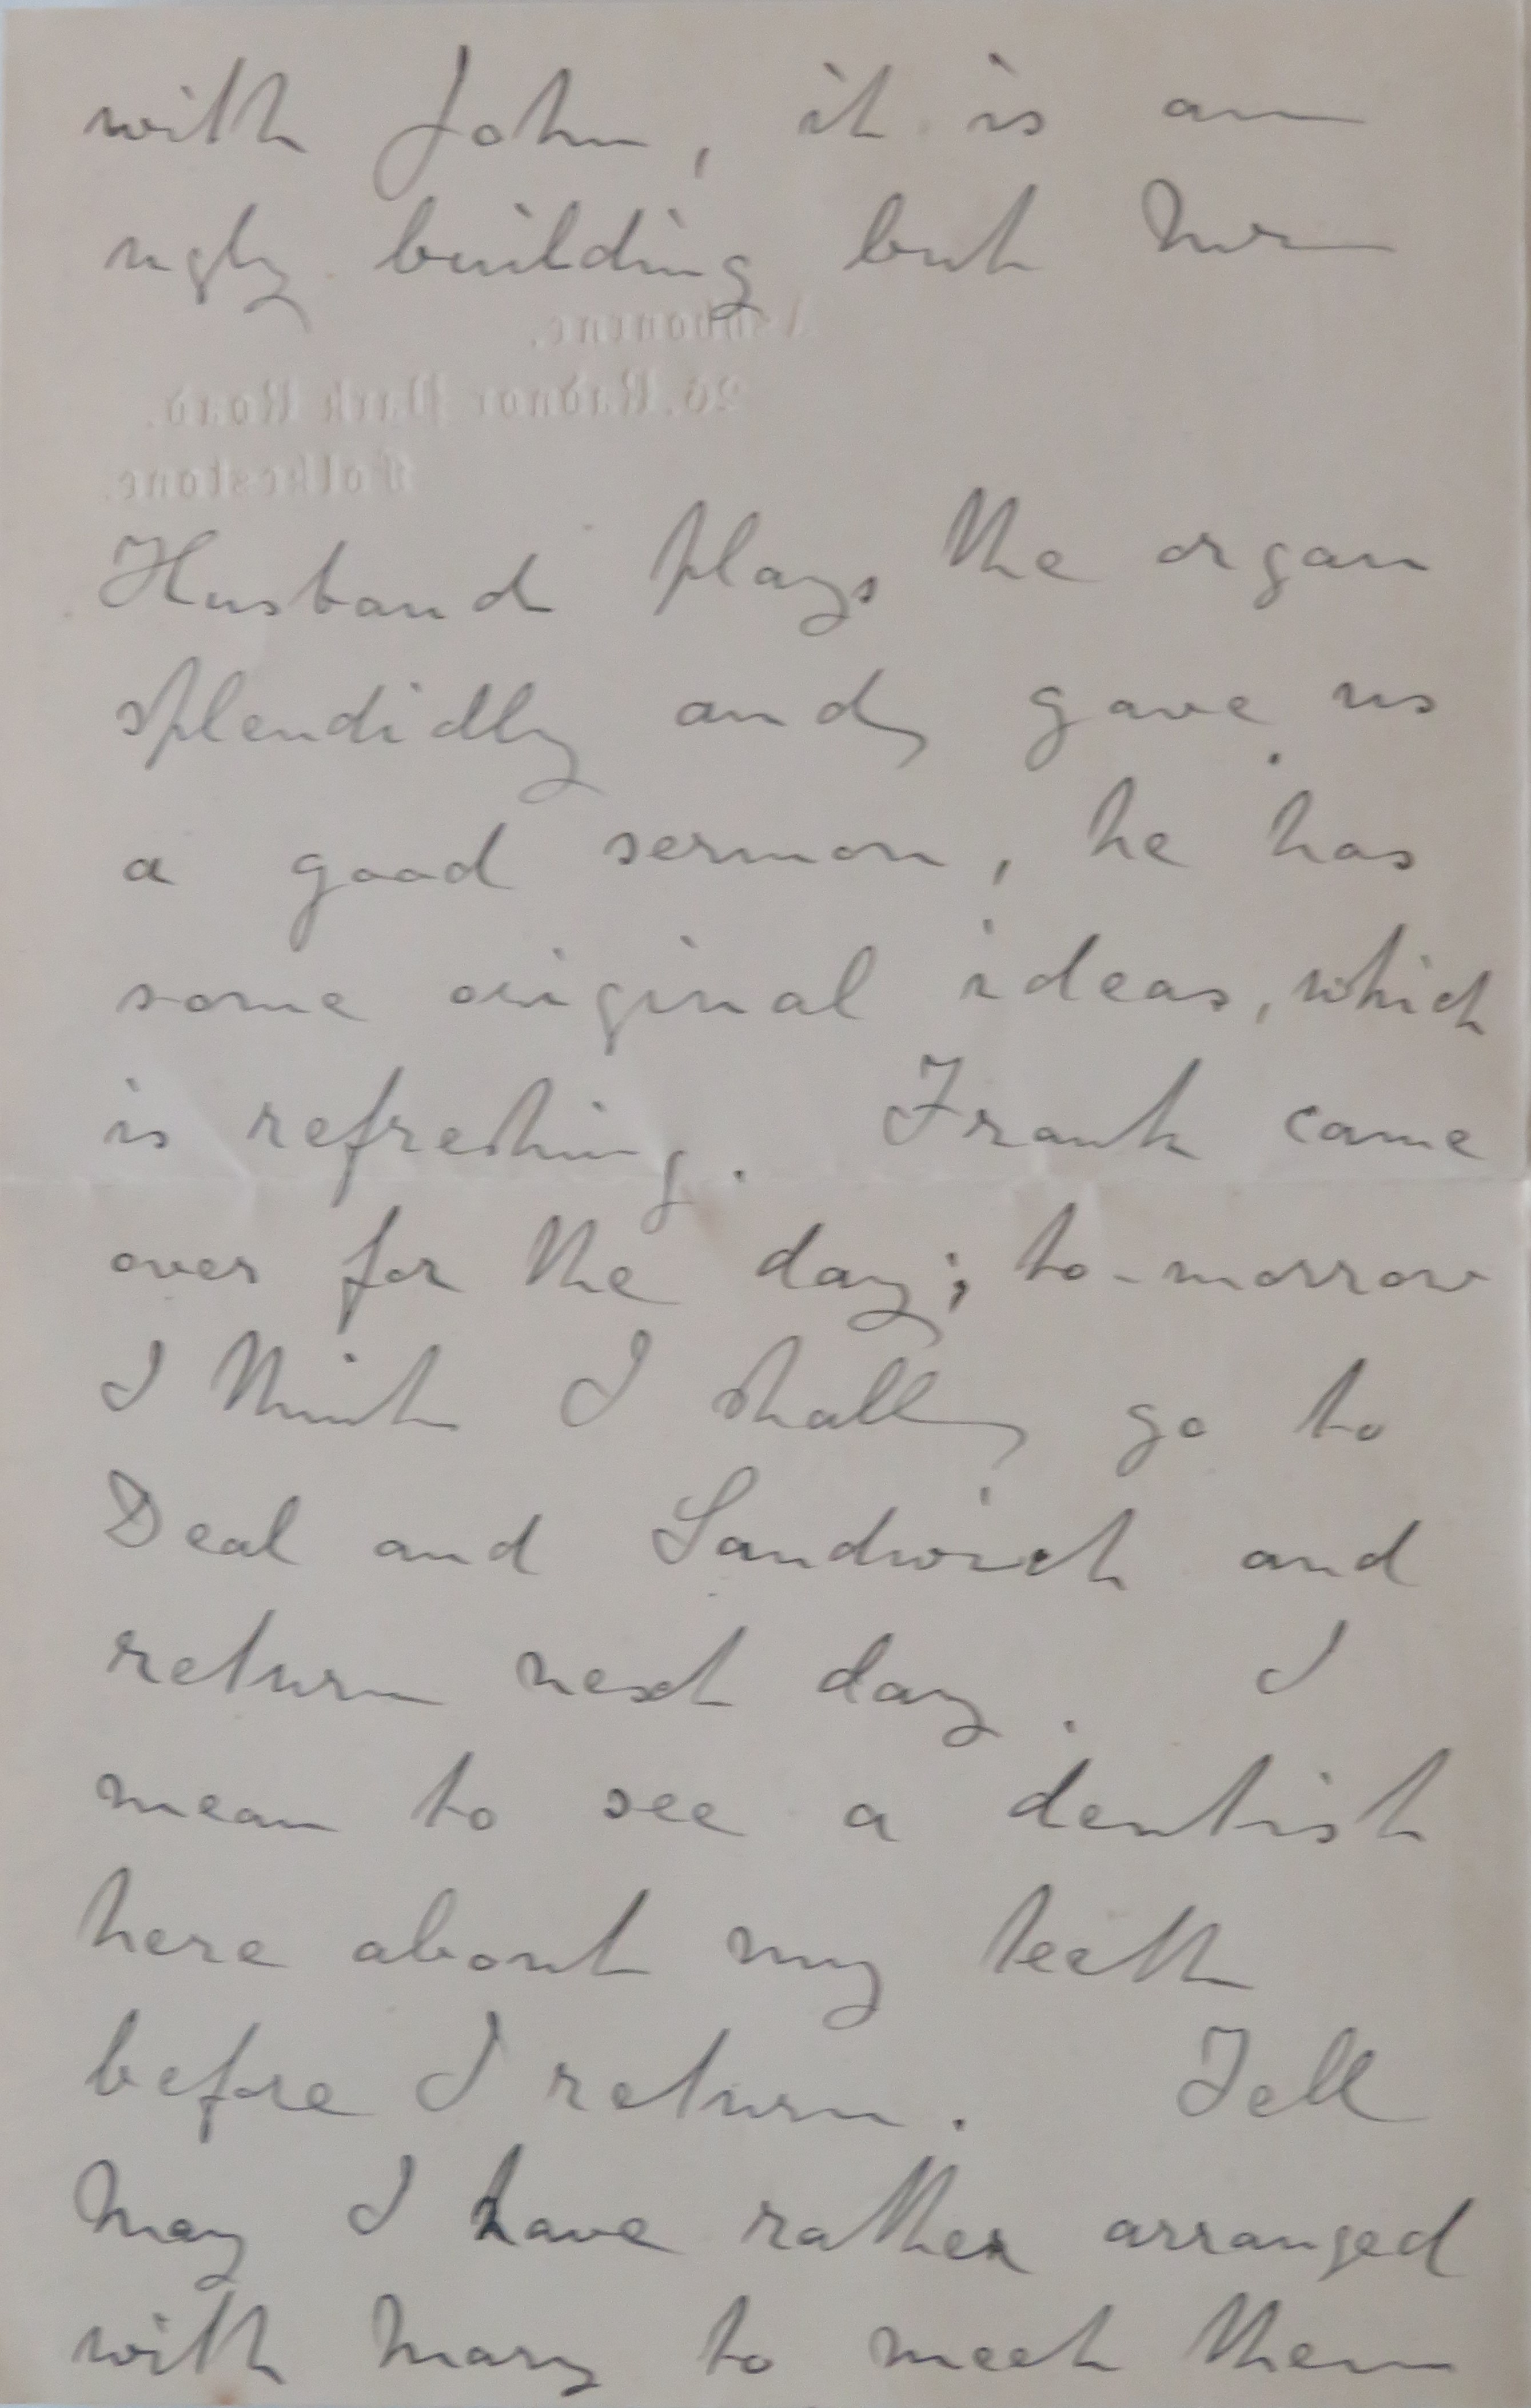 with John, it is an
ugly building but Mr
26, Radnor Park Road.
Folkestone.
Husband plays the organ
splendidly and gave us
a good sermon, he has
some original ideas, which
is refreshing. Frank came
over for the day; to-morrow
I think I shall go to
Deal and Sandwich and
return next day. I
mean to see a dentist
here about my teeth
before I return. Tell
May I have rather arranged
with Mary to meet them